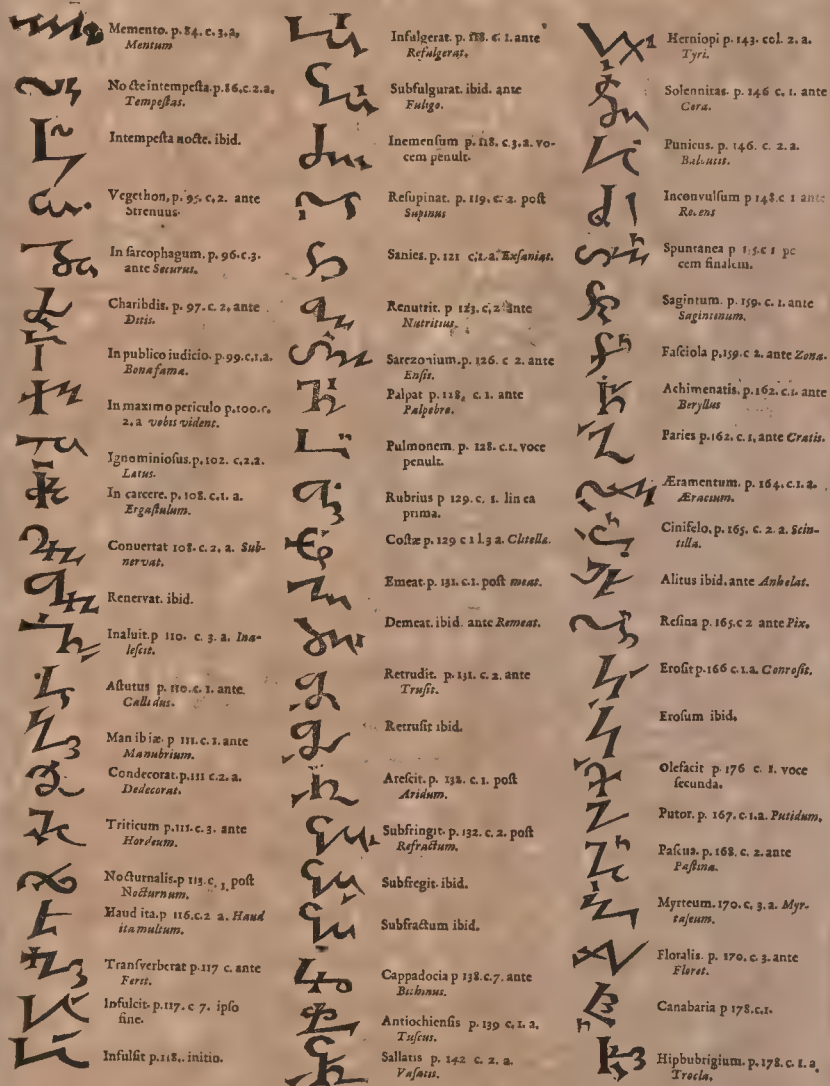 Memento. p. 84. c. 3. a.
Mentum
Nocte intempeſta. p. 86. c. 2. a.
Tempeſtas.
Intempeſta nocte. ibid.
Vegethon, p. 95. c. 2. ante
Strenuus.
In ſarcophagum. p. 96. c. 3.
ante Securus.
Charibdis. p. 97. c. 2, ante
Ditis.
In publico iudicio. p. 99. c, 1, a.
Bona fama.
In maximo periculo p. 100. c.
2. a vobis vident.
Ignominioſus. p. 102. c. 2. a.
Latus.
In carcere. p. 108. c. 1. a.
Ergaſtulum.
Conuertat 108. c. 2, a. Sub-
nervat.
Renervat. ibid.
Inaluit. p 110. c. 3. a. Ina-
leſcit.
Aſtutus p. 110. c. 1. ante
Callidus.
Manibiæ. p 111. c. 1. ante
Manubrium.
Condecorat. p. 111 c. 2. a.
Dedecorat.
Triticum p. 111. c. 3. ante
Hordeum.
Nocturnalis. p 113. c, 3, poſt
Nocturnum.
Haud ita. p 116. c. 2 a. Haud
ita multum.
Tranſverberat p. 117 c. ante
Ferit.
Infulcit. p. 117. c 7. ipſo
fine.
Infulſit p. 118. initio.
Infulgerat. p. 118. c. 1. ante
Refulgerat.
Subfulgurat. ibid. ante
Fuligo.
Inemenſum p. 118. c. 3. a. vo-
cem penult.
Reſupinat. p. 119. c. 2. poſt
Supinus
Sanies. p. 121 c, 1. a. Exſaniat.
Renutrit. p 123. c, 2 ante
Nutritius.
Sarezonium. p. 126. c 2. ante
Enſis.
Palpat p. 128, c. 1. ante
Palpebra.
Pulmonem. p. 128. c. 1. voce
penult.
Rubrius p 129. c. 1. linea
prima.
Coſtæ p. 129 c 1 l. 3 a. Clitella.
Emeat. p. 131. c. 1. poſt meat.
Demeat. ibid. ante Remeat.
Retrudit. p. 131. c. 2. ante
Truſit.
Retruſit ibid.
Areſcit. p. 132. c. 1. poſt
Aridum.
Subfringit. p. 132. c. 2. poſt
Refractum.
Subfregit. ibid.
Subfractum ibid.
Cappadocia p 138. c. 7. ante
Bithinus.
Antiochenſis p. 139 c, 1. a,
Tuſcus.
Sallatis p. 142 c. 2. a.
Vaſatis.
Herniopi p. 143. col. 2. a.
Tyri.
Solennitas. p. 146 c. 1. ante
Cera.
Punicus. p. 146. c. 2. a.
Inconvulſum p 148. c 1 ante
Recens
Spuntanea p c 1
cem finalem.
Sagintum. p. 159. c. 1. ante
Sagintinum.
Faſciola p. 159. c 2. ante Zona.
Achimenatis. p. 162. c. 1. ante
Beryllus
Paries p. 162. c. 1, ante Cratis.
Æramentum. p. 164. c. 1. a.
Æracium.
Ciniſelo. p. 165. c. 2. a. Scin-
tilla.
Alitus ibid. ante Anhelat.
Reſina p. 165. c 2 ante Pix.
Eroſit p. 166 c. 1. a. Conroſit.
Eroſum ibid.
Olefacit p. 176 c. 1. voce
ſecunda.
Putor. p. 167. c. 1. a. Putidum.
Paſcua. p. 168. c. 2. ante
Paſtina.
Myrteum. 170. c, 3. a. Myr-
taſeum.
Floralis. p. 170. c. 3. ante
Floret.
Canabaria p 178. c. 1.
Hipbubrigium. p. 178. c. 1. a.
Trocla.